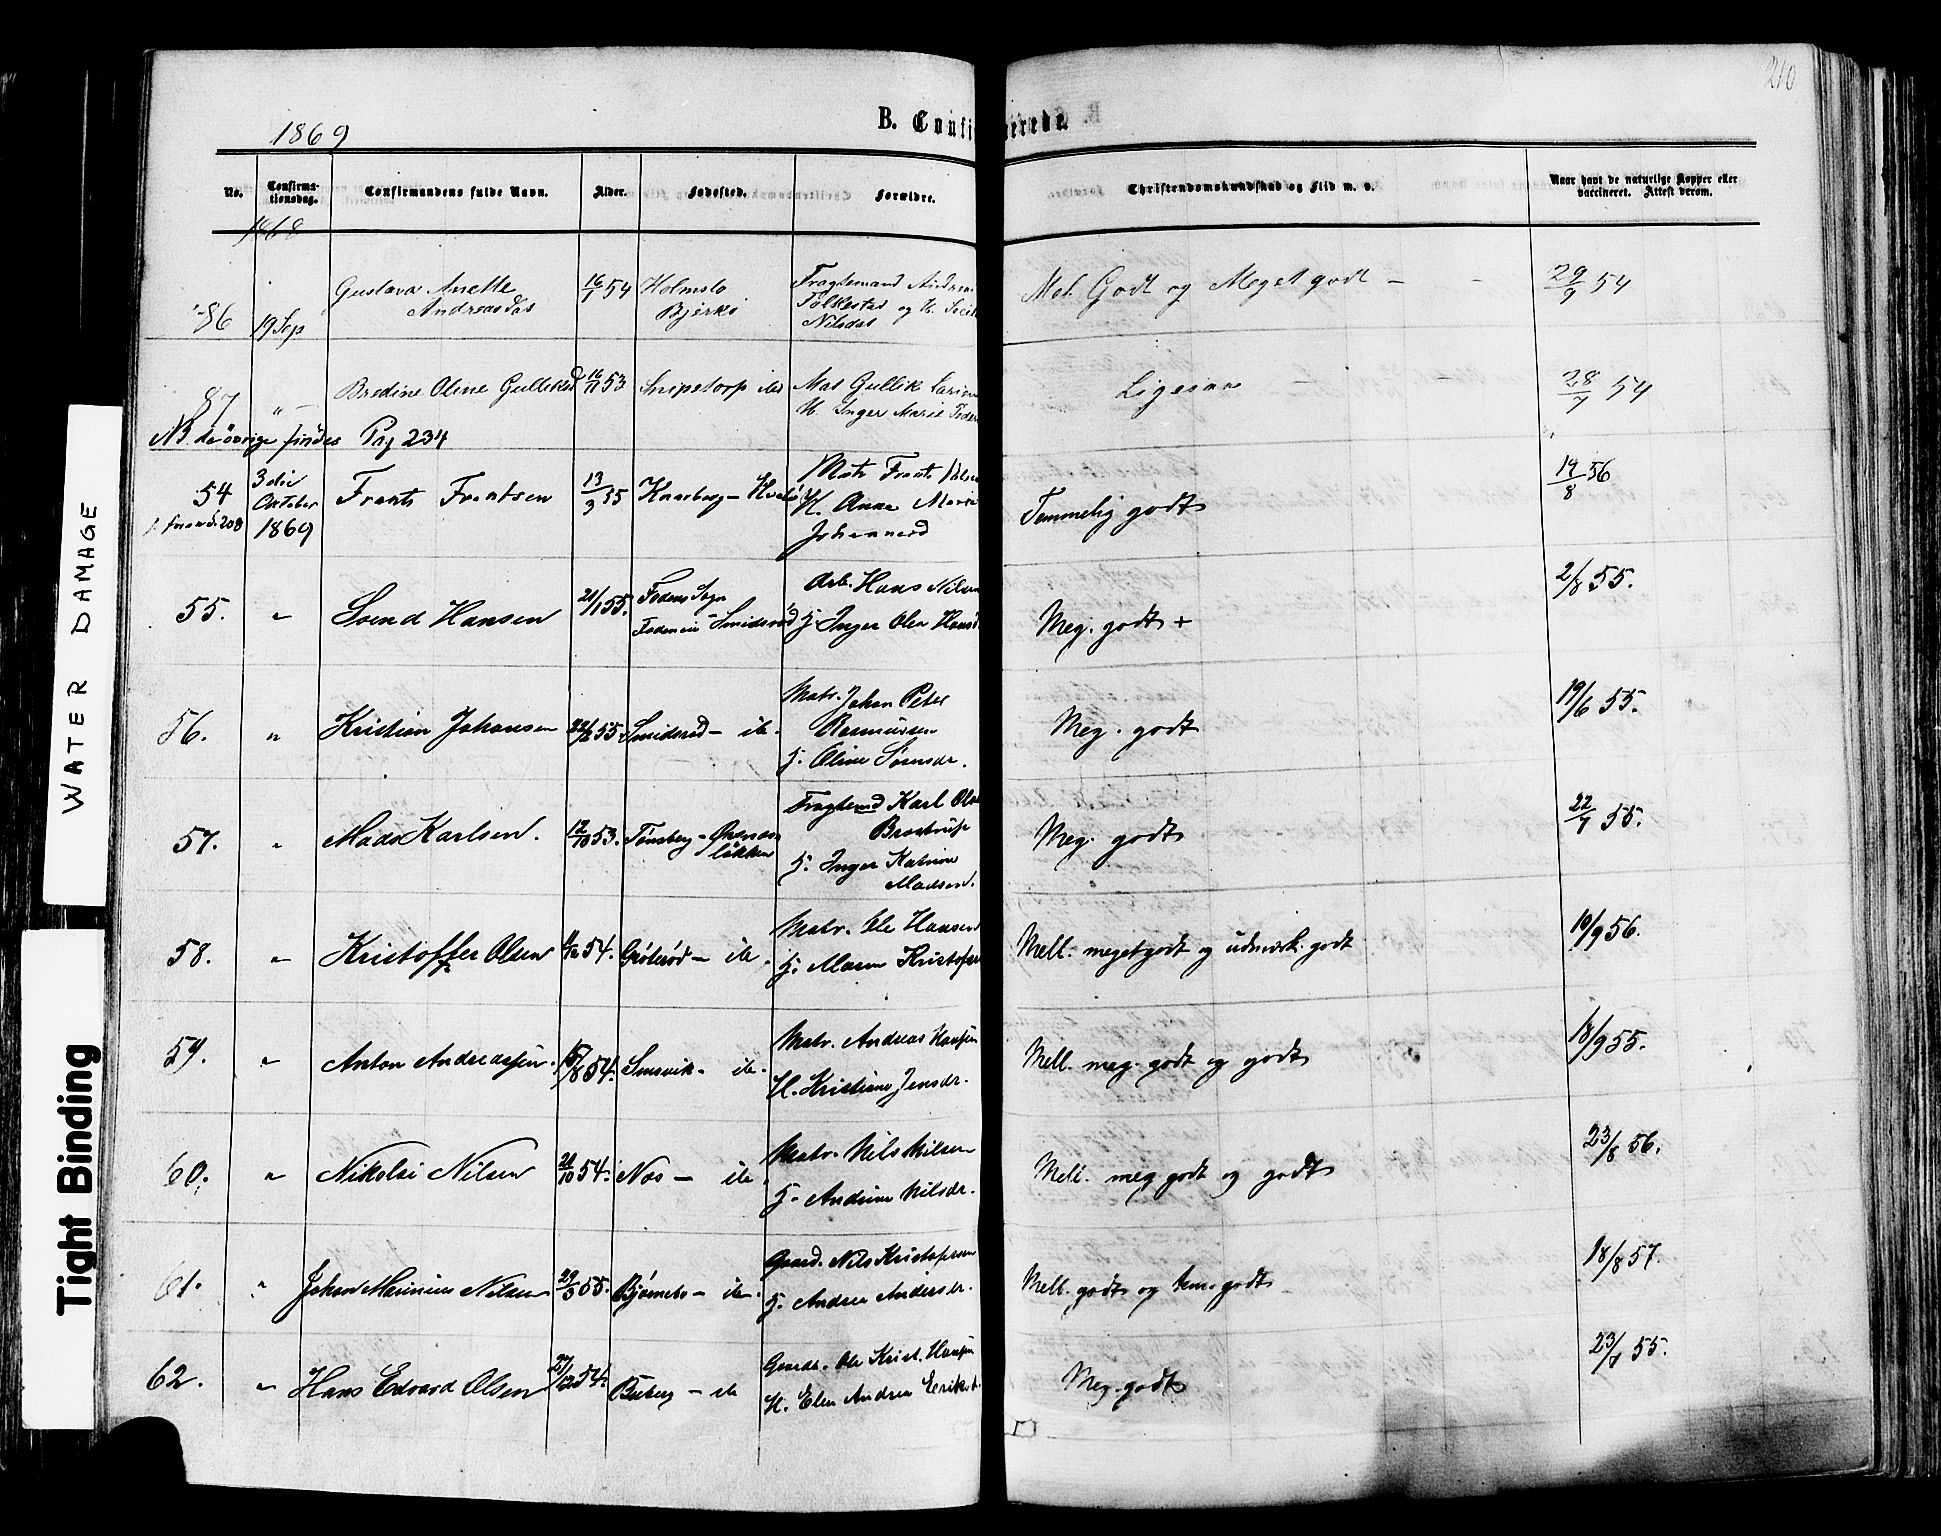 210
1869
B. Confirmerede.
No.
Confirma-
tionsdag.
Confirmandens fulde Navn.
Alder.
Fødested.
Forældre.
Christendomskundskab og Flid m. v.
Naar havt de naturlige Kopper eller
vaccineret. Attest derom.
1868
86 19 Sep Gustava Anette 16/1 54 Holmslo Fragtemand Andreas Mel. Godt og Meget godt — - 29/9 54
Andreasdas Bjerkø Folkestad og H.
Nilsdat
87 " — Bredine Oline Gulliksd 16/11 53 Snipetorp Mat Gullik Larsen Ligesaa — - 28/7 54
H. Inger Marie
NB de øvrige findes Pag 234
54 3die Frants Frantsen 13/3 55 Kaarberg — Matr Frants Temmelig godt 14/8 56
Oktober H. Anna Maria
1869 Johannesd
208
55. " Svend Hansen 21/1 55. Fodens Sogn Arb. Hans Nilsen Meg. godt + 2/8 55.
Smidsrød H. Inger Olea
56. " Kristian Johansen 22/2 55. Smidsrød — ib. Matr. Johan Peter Meg. godt 19/6 55.
Rasmussen
H. Oline Sørensdr.
57. " Mads Karlsen. 12/10 53. Tønsberg — Fragtemd Karl Olsen Meg. godt 22/7 55.
løkken Brostrup
H. Inger Katrine
Madsen.
58. " Kristoffer Olsen 11/12 54. Grøterød — ib. Matr. Ole Hansen Mell. meget godt og udmærk. godt 19/9 56.
H. Maren Kristofers
59. " Anton Andreassen. 15/8 54. Smsvik — ib. Matr. Andreas Hansen Mell. meg. godt og godt 18/9 55.
H. Kristiane Jensdr.
60. " Nikolai Nilsen 21/10 54. Nes — ib. Matr. Nils Nilsen Mell. meg godt og godt 23/8 56.
H. Andrine Nilsdr.
61. " Johan Marinius Nilsen 29/3 55. Bjørnebo — ib. Gaard. Nils Kristofersen Mell. godt og tem. godt 18/8 57.
H. Andrea Andersdr.
62. " Hans Edvard Olsen 27/12 54. Buberg — ib Gaardb. Ole Krist. Hansen Meg. godt 23/7 55.
H. Elen Andrea Eriksd.
WATER DAMAGE
Tight Binding